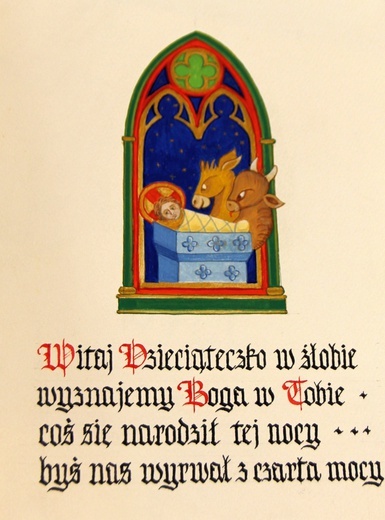 Witaj Dzieciąteczko w żłobie
wyznajemy Boga w Tobie
coś się narodził tej nocy
byś nas wyrwał z czarta mocy